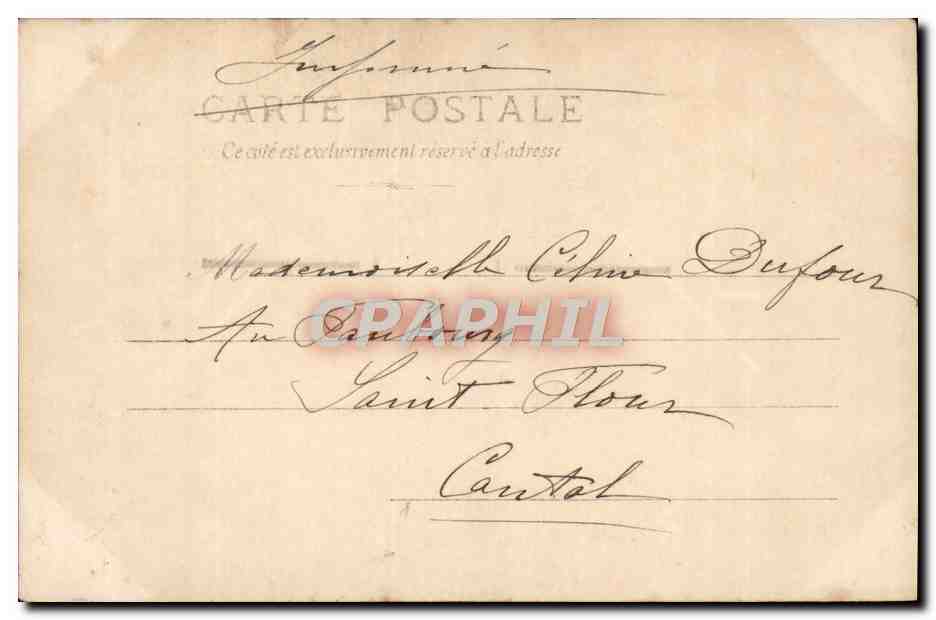 Imprimé
CARTE POSTALE
Ce côté est exclusivement réservé à l'adresse
Mademoiselle Céline Dufour
CPAPHIL
Au Faubourg
Saint-Flour
Cantal